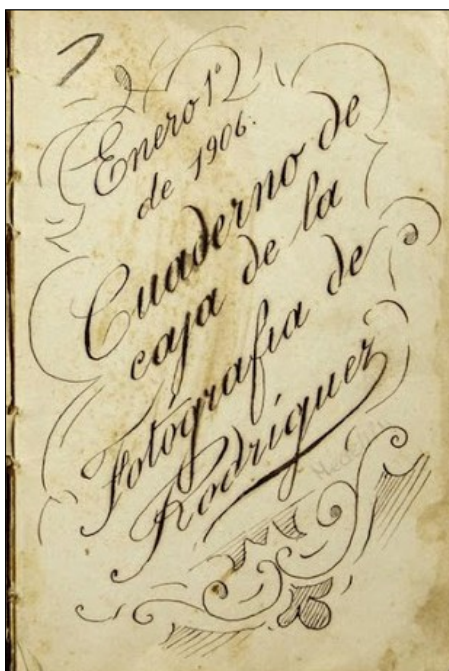 Enero 1º
de 1906.
Cuaderno de
caja de la
Fotografia de
Rodríguez